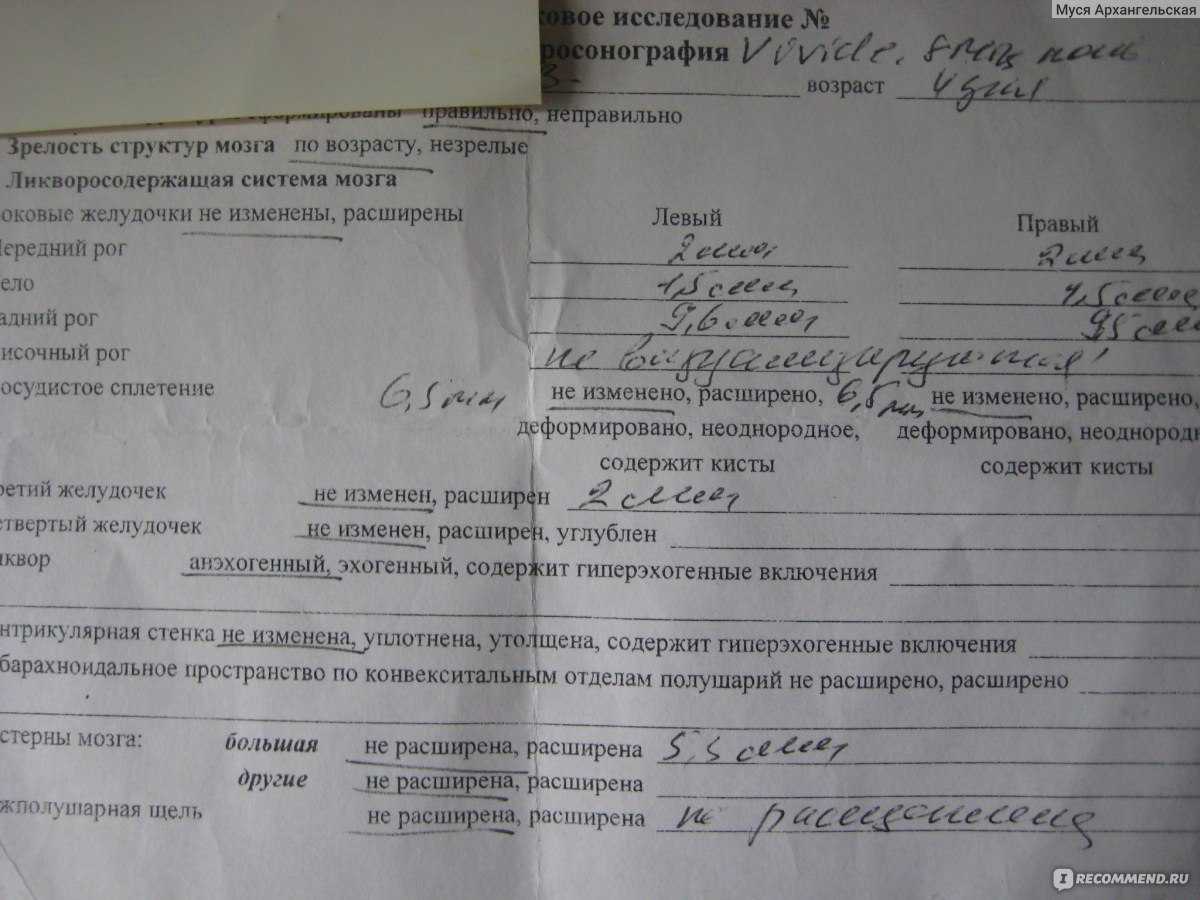 Муся Архангельская
ковое исследование №
росонография Vivid e, 8 мгц
3- возраст 4 дня
правильно, неправильно
Зрелость структур мозга по возрасту, незрелые
Ликворосодержащая система мозга
оковые желудочки не изменены, расширены Левый Правый
ередний рог 2 мм 2 мм
ело 1,5 мм 1,5 мм
адний рог 9,6 мм 9,5 мм
исочный рог не визуализируются!
осудистое сплетение 6,5 мм не изменено, расширено, 6,5 мм не изменено, расширено,
деформировано, неоднородное, деформировано, неоднородн
содержит кисты содержит кисты
ретий желудочек не изменен, расширен 2 мм
етвертый желудочек не изменен, расширен, углублен
иквор анэхогенный, эхогенный, содержит гиперэхогенные включения
нтрикулярная стенка не изменена, уплотнена, утолщена, содержит гиперэхогенные включения
барахноидальное пространство по конвекситальным отделам полушарий не расширено, расширено
стерны мозга: большая не расширена, расширена 5,5 мм
другие не расширена, расширена
жполушарная щель не расширена, расширена не расширена
IRECOMMEND.RU